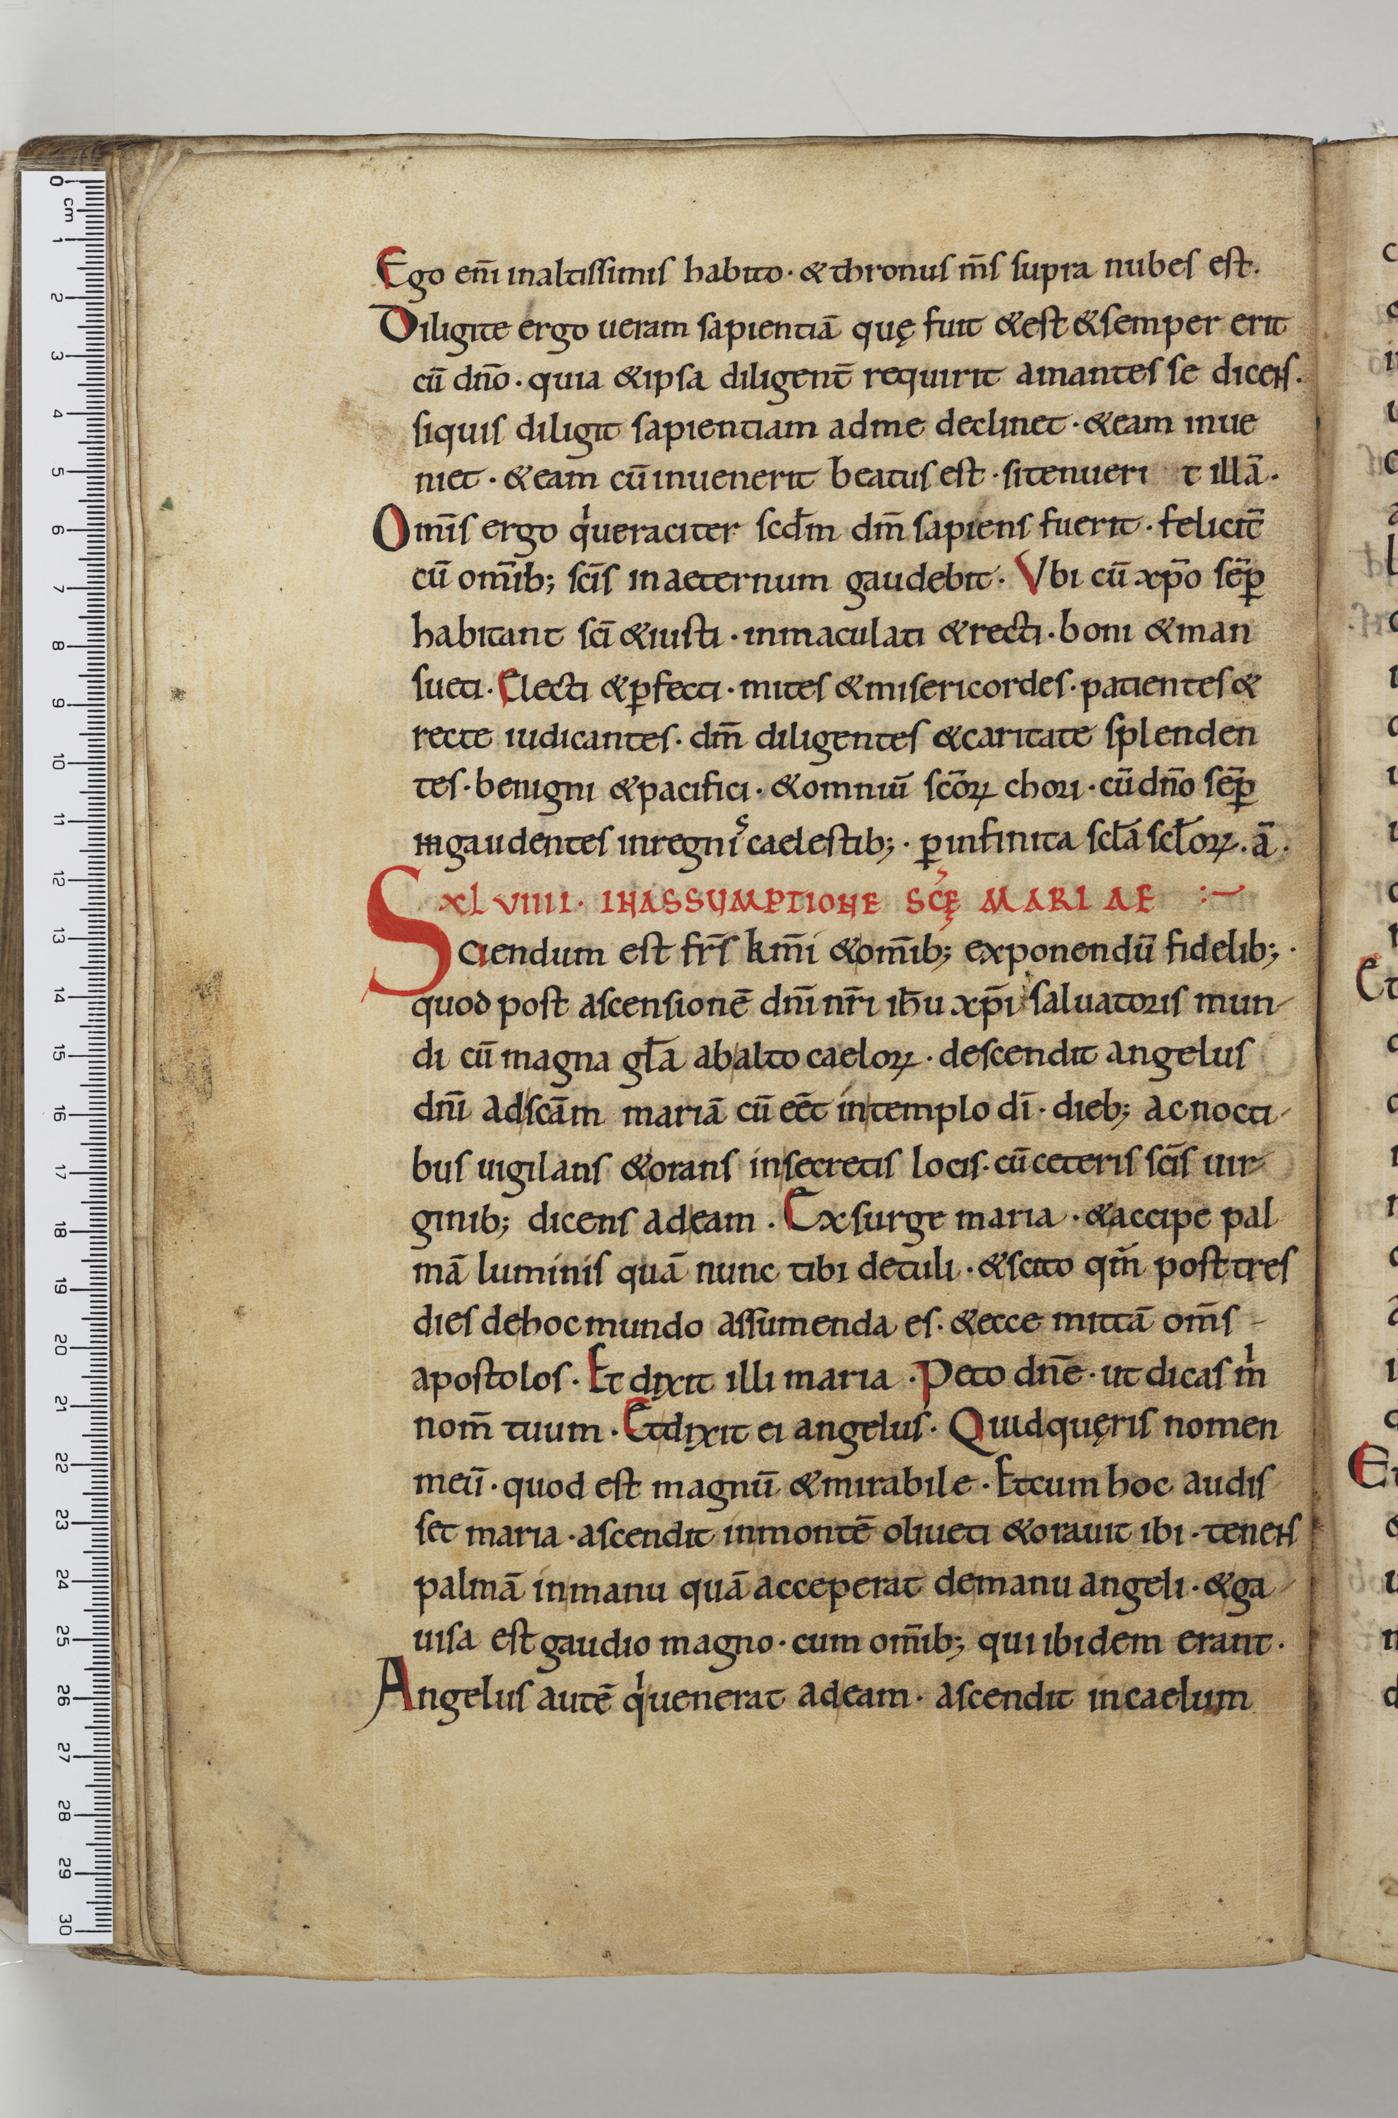 Ego eni̅ inaltissimis habito · & thronus m̅s supra nubes est.
Diligite ergo ueram sapientia̅ quę fuit &est &semper erit
cu̅ dn̅o · quia &ipsa diligent̅ requirit amantes se dicens.
siquis diligit sapientiam adme declinet · &eam inue
niet · &eam cu̅ inuenerit beatus est · sitenueri t illa̅ .
Om̅is ergo qͥ ueraciter scd̅m dm̅ sapiens fuerit . felicit̅
cu̅ om̅ib; sc̅is inaeternum gaudebit . Vbi cu̅ xp̅o se̅ꝑ
habitant sc̅i &iusti · inmaculati &recti · boni &man
sueti . Electi &ꝑfecti · mites &misericordes · patientes &
recte iudicantes · dm̅ diligentes &caritate splenden
tes · benigni &pacifici · &omniu̅ sc̅oꝝ chori · cu̅ dn̅o se̅ꝑ
ingaudentes inregniˢ caelestib; · ꝑ infinita scl̅a scl̅oꝝ . a̅ .
XLVIIII · INASSUMPTIONE SC̅Ę MARIAE :~
Sciendum est fr̅s km̅i &om̅ib; exponendu̅ fidelib; ·
quod post ascensione̅ dn̅i nr̅i ih̅u xp̅i saluatoris mun-
di cu̅ magna gl̅a abalto caeloꝝ · descendit angelus
dn̅i adsca̅m maria̅ cu̅ ee̅t intemplo di̅ · dieb; ac nocti-
bus uigilans &orans insecretis locis · cu̅ ceteris sc̅is uir-
ginib; dicens adeam . Exsurge maria · &accipe pal
ma̅ luminis qua̅ nunc tibi detuli · &scito qm̅ post tres
dies dehoc mundo assumenda es · &ecce mitta̅ om̅s -
apostolos · Et dixit illi maria · Peto dn̅e · ut dicas mͥ
nom̅ tuum · Etdixit ei angelus · Quid quęris nomen
meu̅ · quod est magnu̅ &mirabile · Etcum hoc audis
set maria · ascendit inmonte̅ oliueti &orauit ibi · tenens
palma̅ inmanu qua̅ acceperat demanu angeli · &ga-
uisa est gaudio magno · cum om̅ib; qui ibidem erant .
Angelus aute̅ qͥ uenerat adeam · ascendit incaelum
0 cm 1 2 3 4 5 6 7 8 9 10 11 12 13 14 15 16 17 18 19 20 21 22 23 24 25 26 27 28 29 30